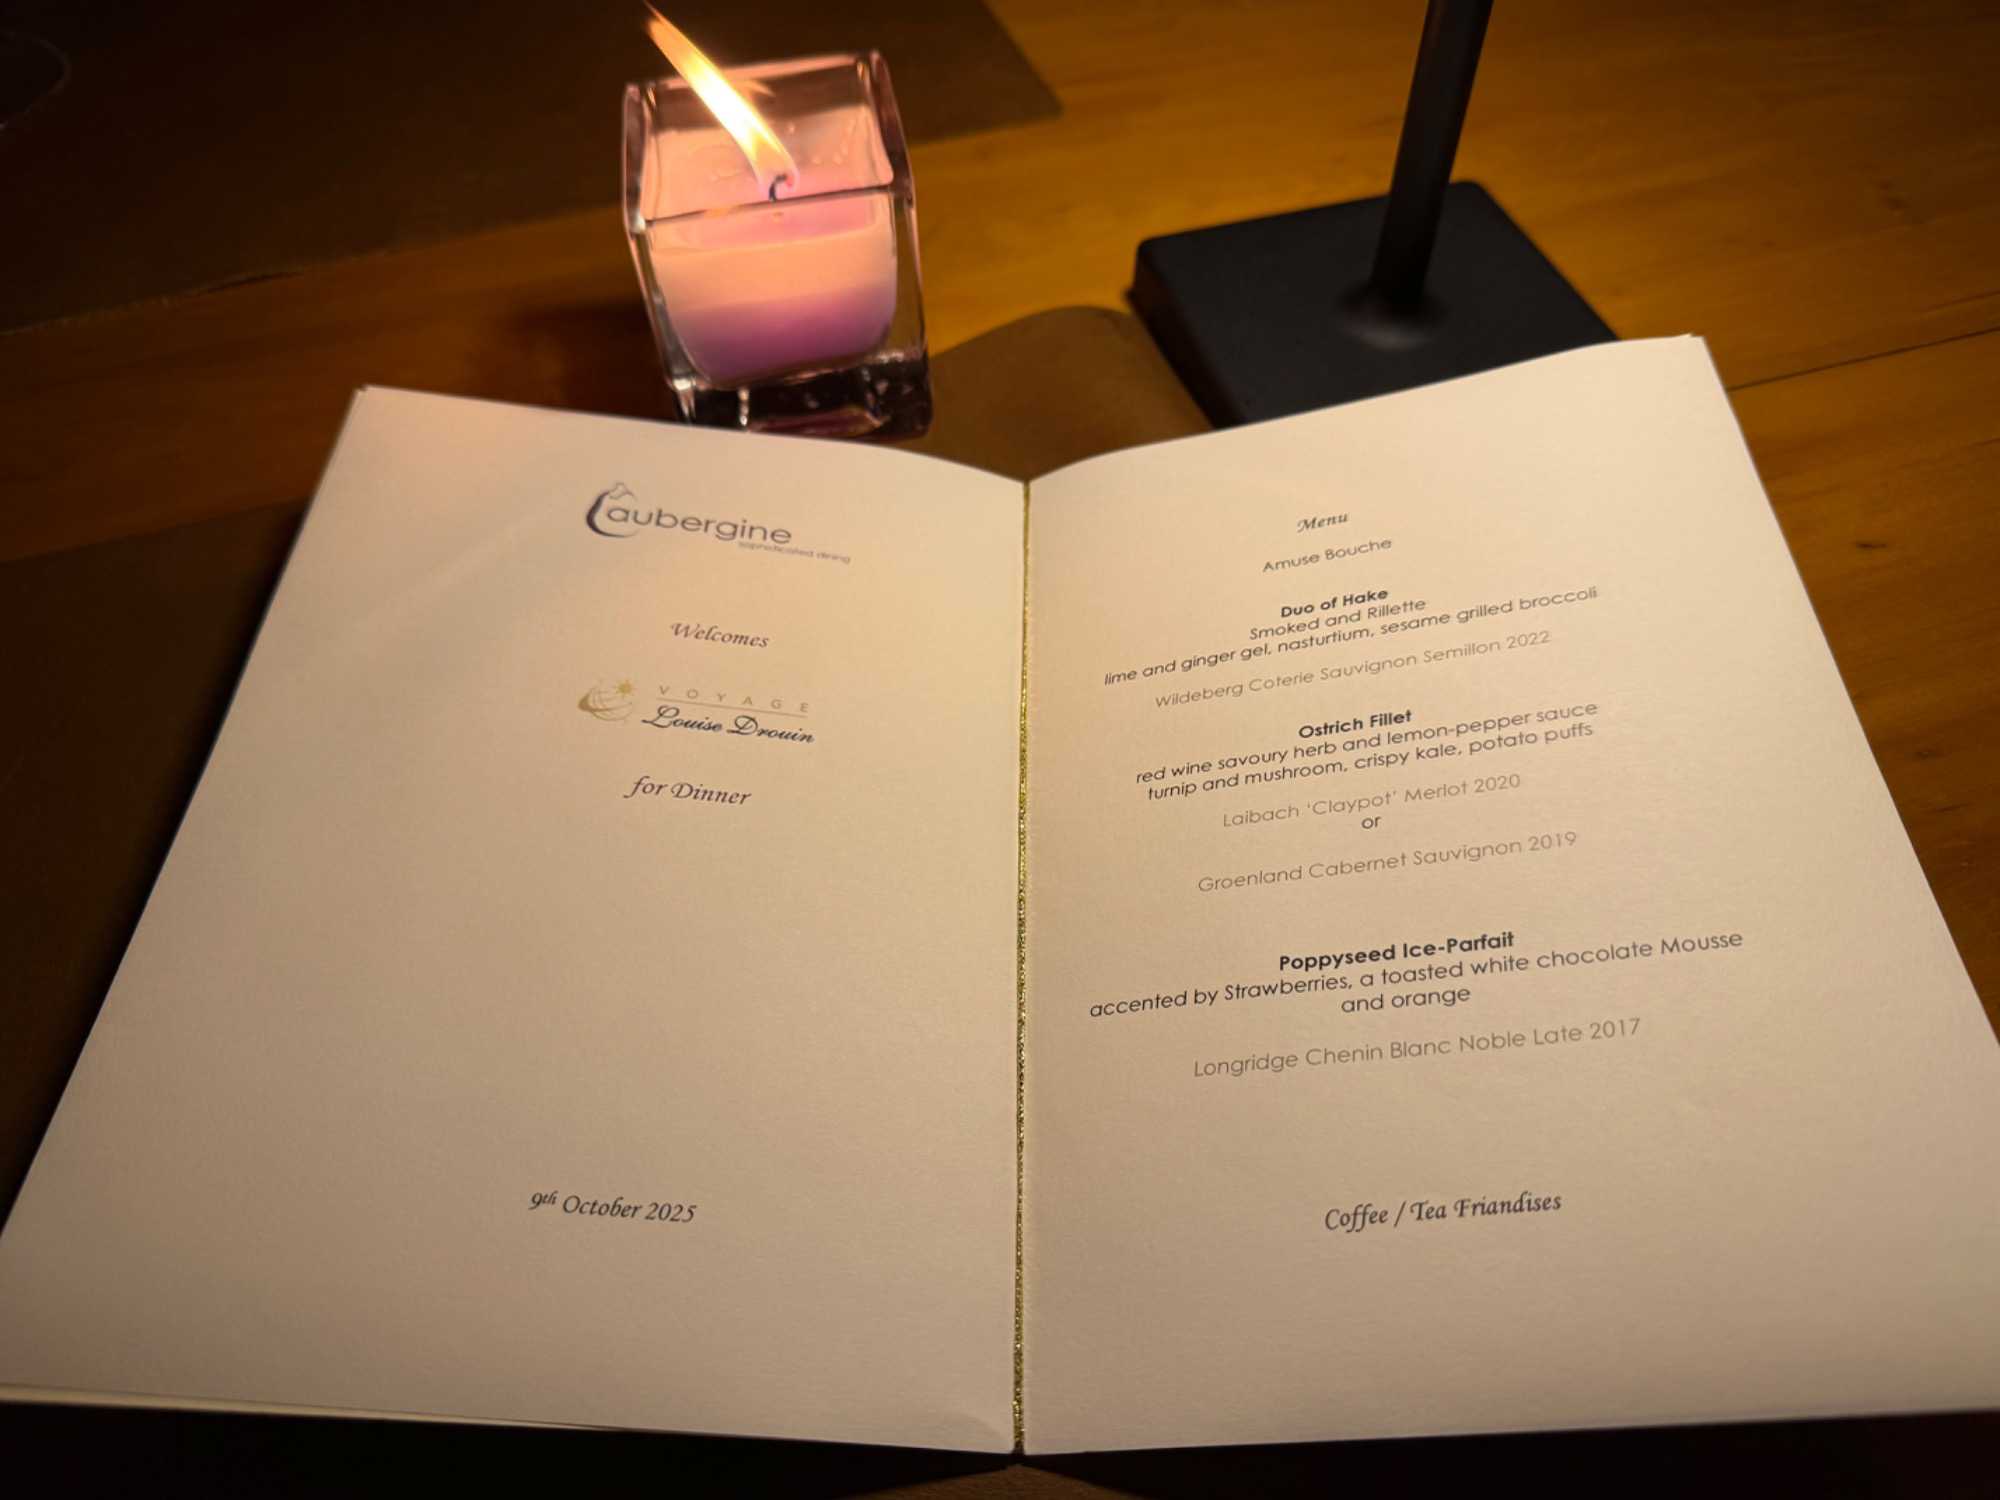 aubergine
sophisticated dining
Welcomes
VOYAGE
Louise Drouin
for Dinner
9th October 2025
Menu
Amuse Bouche
Duo of Hake
Smoked and Rillette
lime and ginger gel, nasturtium, sesame grilled broccoli
Wildeberg Coterie Sauvignon Semillon 2022
Ostrich Fillet
red wine savoury herb and lemon-pepper sauce
turnip and mushroom, crispy kale, potato puffs
Laibach ‘Claypot’ Merlot 2020
or
Groenland Cabernet Sauvignon 2019
Poppyseed Ice-Parfait
accented by Strawberries, a toasted white chocolate Mousse
and orange
Longridge Chenin Blanc Noble Late 2017
Coffee / Tea Friandises